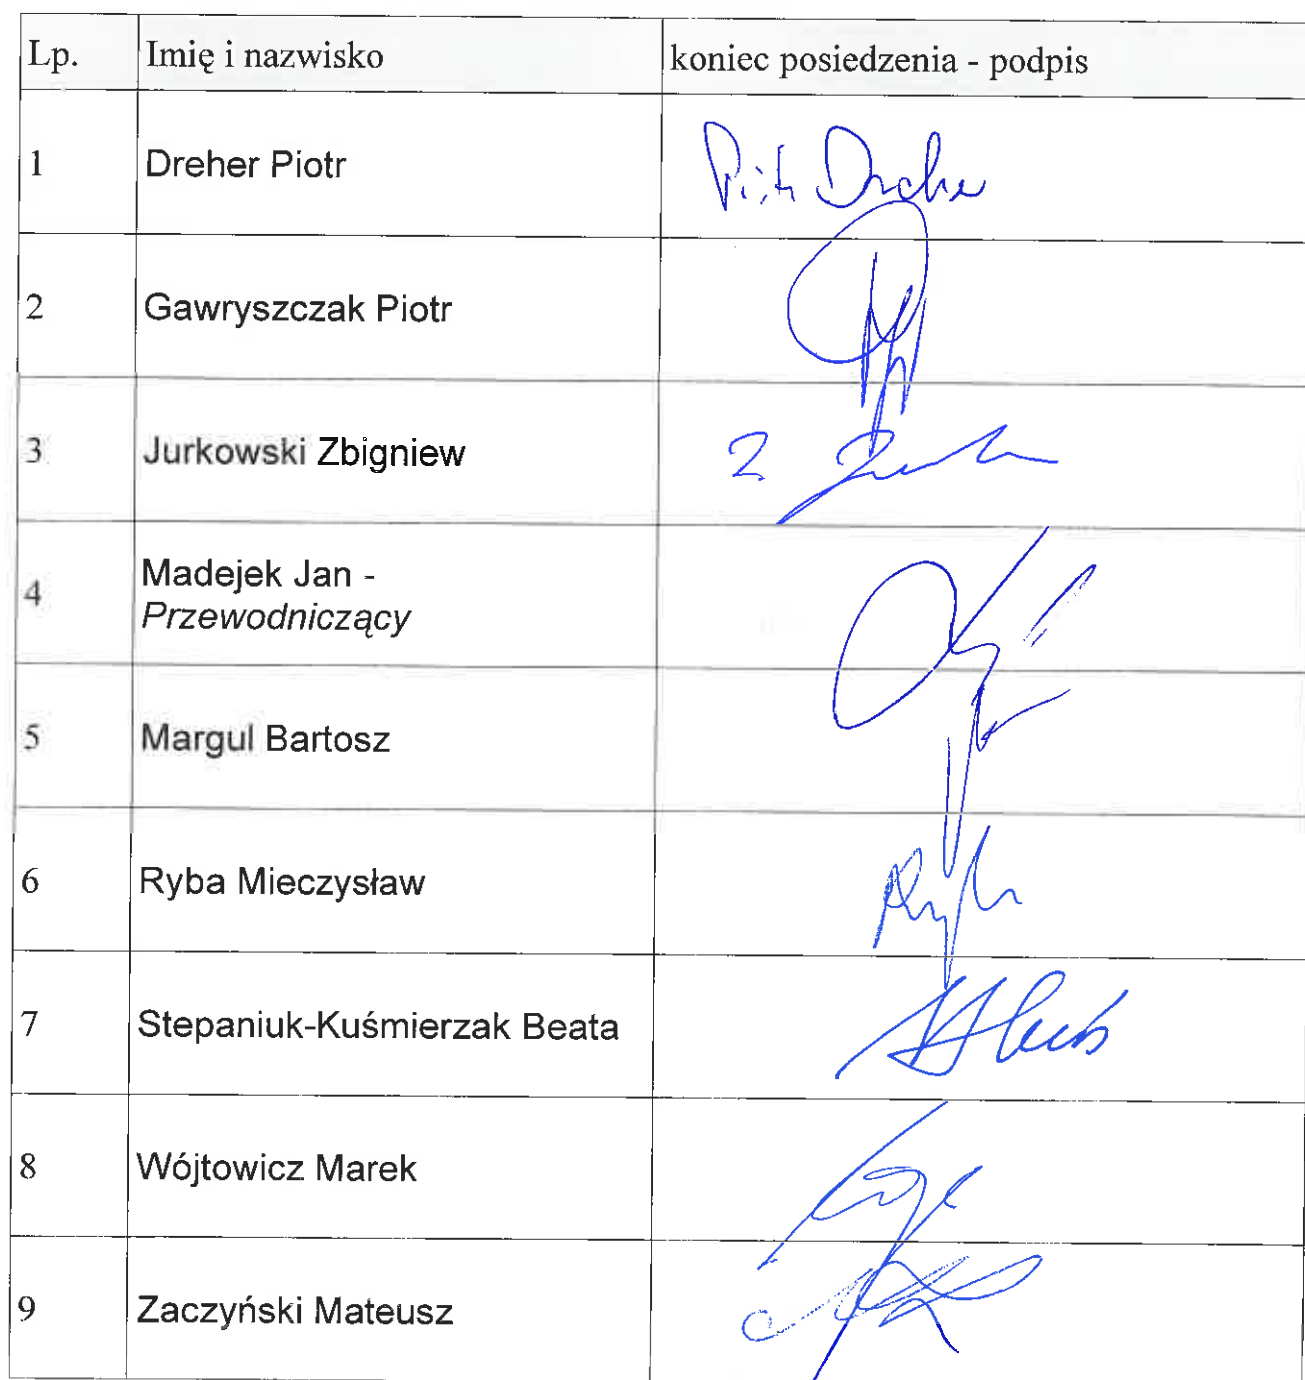 Lp. Imię i nazwisko koniec posiedzenia - podpis
1 Dreher Piotr Piotr Dreher
2 Gawryszczak Piotr
3 Jurkowski Zbigniew
4 Madejek Jan -
Przewodniczący
5 Margul Bartosz
6 Ryba Mieczysław
7 Stepaniuk-Kuśmierzak Beata
8 Wójtowicz Marek
9 Zaczyński Mateusz